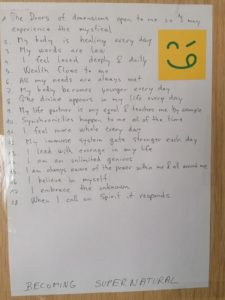 1. The Doors of dimensions open to me so I may
experience the mystical
2. My body is healing every day
3. My words are law
4. I feel loved deeply & daily
5. Wealth flows to me
6. All my needs are always met
7. My body becomes younger every day
8. The divine appears in my life every day
9. My life partner is my equal & teaches me by example
10. Synchronicities happen to me all of the time
11. I feel more whole every day
12. My immune system gets stronger each day
13. I lead with courage in my life
14. I am an unlimited genius
15. I am always aware of the power within me & all around me
16. I believe in myself
17. I embrace the unknown
18. When I call on Spirit it responds
BECOMING SUPERNATURAL